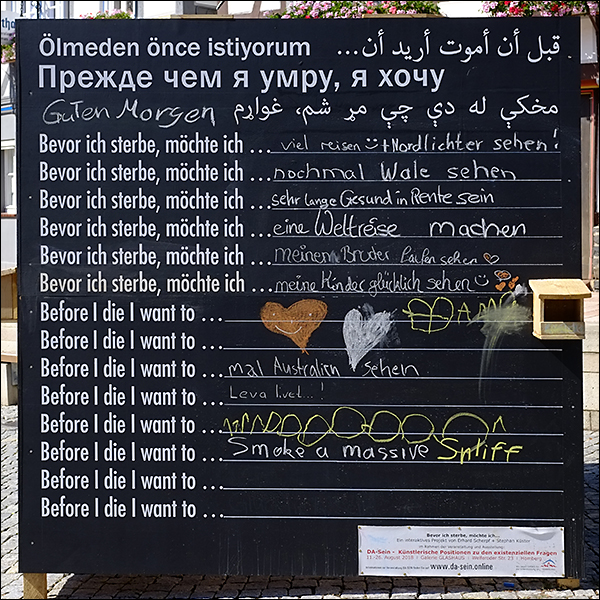 Ölmeden önce istiyorum
قبل أن أموت أريد أن...
Прежде чем я умру, я хочу
Guten Morgen
مخکې له دې چې مړ شم، غواړم
Bevor ich sterbe, möchte ich ... viel reisen + Nordlichter sehen!
Bevor ich sterbe, möchte ich ... nochmal Wale sehen
Bevor ich sterbe, möchte ich ... sehr lange Gesund in Rente sein
Bevor ich sterbe, möchte ich ... eine Weltreise machen
Bevor ich sterbe, möchte ich ... meinen Bruder laufen sehen
Bevor ich sterbe, möchte ich ... meine Kinder glücklich sehen
Before I die I want to ...
Before I die I want to ...
Before I die I want to ... mal Australien sehen
Before I die I want to ... Leva livet...!
Before I die I want to ...
Before I die I want to ... Smoke a massive Spliff
Before I die I want to ...
Before I die I want to ...
Bevor ich sterbe, möchte ich...
Ein interaktives Projekt von Erhard Scherpf + Stephan Küster
im Rahmen der Veranstaltung und Ausstellung:
DA-Sein - Künstlerische Positionen zu den existenziellen Fragen
11.-26. August 2018 | Galerie GLASHAUS | Homberg
www.da-sein.online